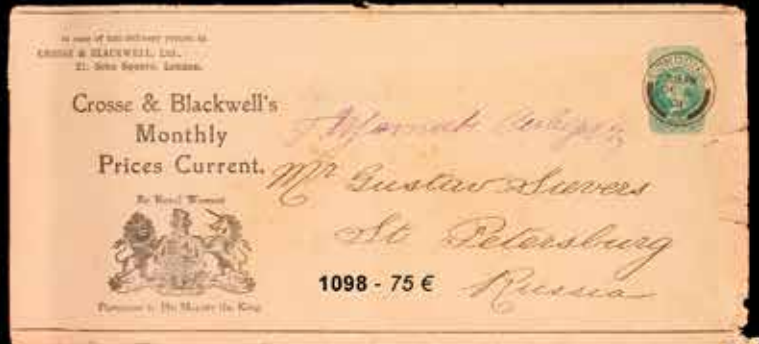 In case of non-delivery return to
CROSSE & BLACKWELL, Ltd.,
21, Soho Square, London.
Crosse & Blackwell's
Monthly
Prices Current.
By Royal Warrant
Purveyors to His Majesty the King
Mr Gustav Sievers
St Petersburg
Russia
1098 - 75 €
LONDON